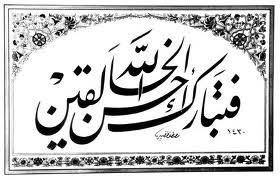 فتبارك الله أحسن الخالقين
١٤٢٠